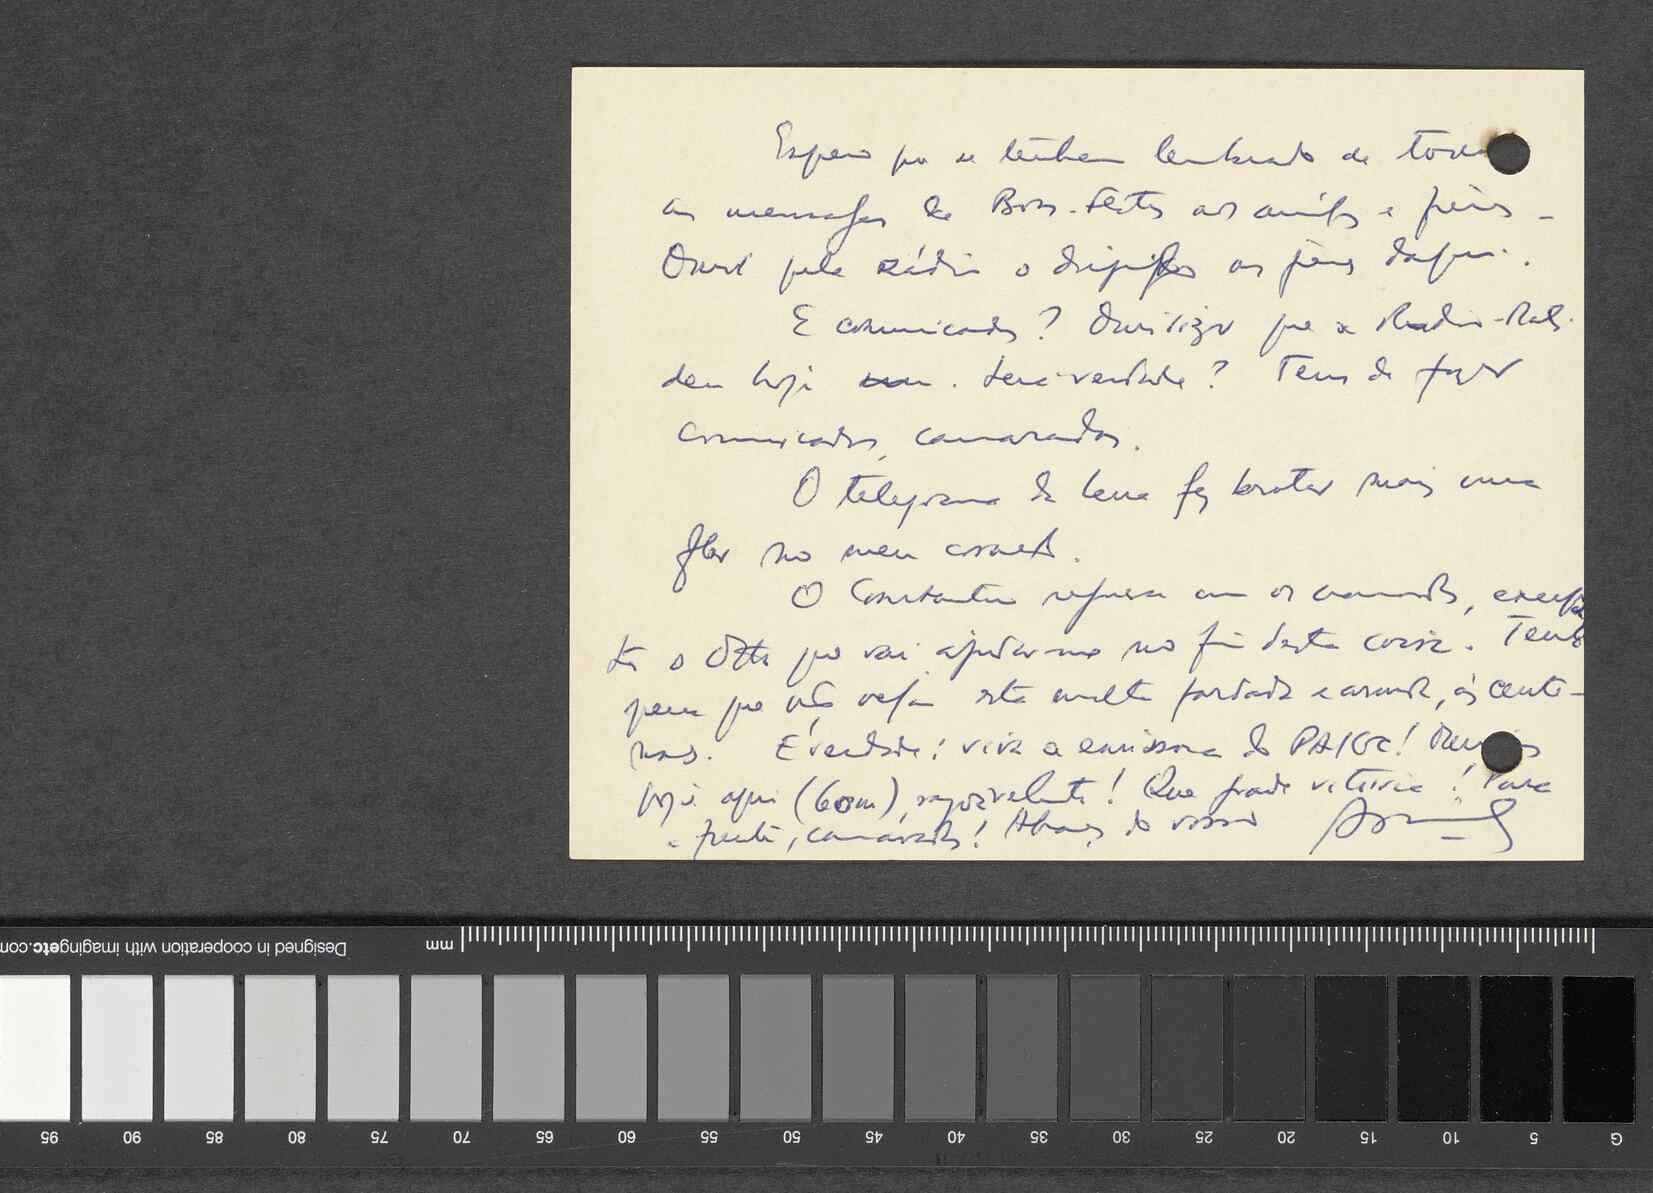 Espero que se tenham lembrado de todas
as mensagens de Boas-Festas aos amigos e
Ouvi pela Rádio o dos
E comunicados? que a Rádio-
deu hoje um. Será verdade? Tens de fazer
comunicados, camaradas.
O telegrama da Lena fez brotar mais uma
flor no meu
O Constantin regressa com os camaradas,
o Otto que vai ajudar-me no fim desta coisa. Tenho
pena que não vejam esta malta fardada e armada, às cente-
nas. É verdade: viva a emissora do PAIGC!
hoje aqui (60m), razoavelmente! Que grande vitória! Para
a frente, camaradas! Abraços do vosso
mm
Designed in cooperation with imagingetc.com
95 90 85 80 75 70 65 60 55 50 45 40 35 30 25 20 15 10 5 G